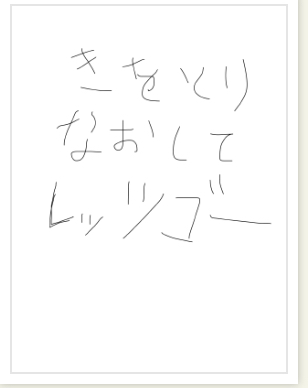 きをとり
なおして
レッツゴー